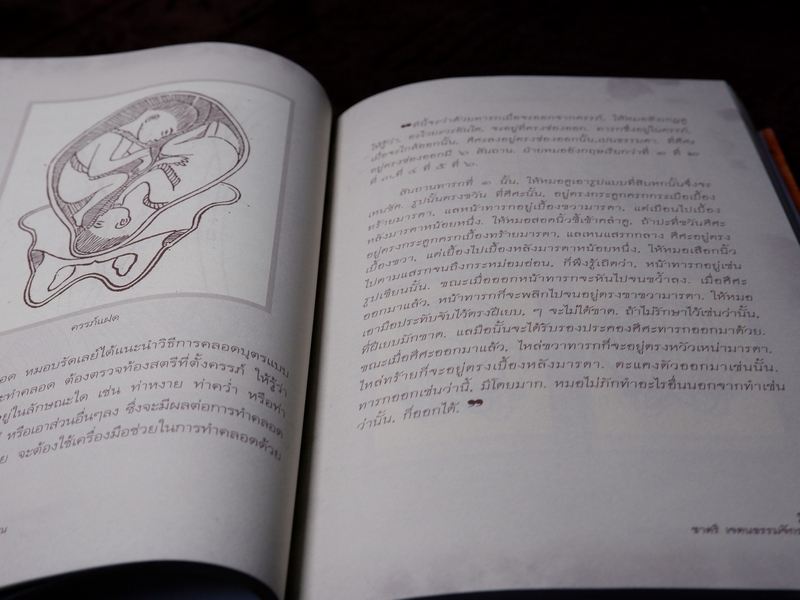 ครรภ์แฝด
อด หมอบรัดเลย์ได้แนะนำวิธีการคลอดบุตรแบบ
ะทำคลอด ต้องตรวจท้องสตรีที่ตั้งครรภ์ ให้รู้ว่า
อยู่ในลักษณะใด เช่น ท่าหงาย ท่าคว่ำ หรือท่า
หรือเอาส่วนอื่นๆลง ซึ่งจะมีผลต่อการทำคลอด
ย จะต้องใช้เครื่องมือช่วยในการทำคลอดด้วย
ณ
ให้รู้ว่า, จะอยู่ที่ตรงช่องออก. ทารกซึ่งอยู่ในครรภ์,
เมื่อจะใกล้ออกนั้น, ศีศะลงอยู่ตรงช่องออกนั้นเปนธรรมดา. ที่ศีศะ
อยู่ตรงช่องออกมี ๖ สันถาน. ฝ่ายหมออังกฤษเรียกว่าที่ ๑ ที่ ๒
ที่ ๓ ที่ ๔ ที่ ๕ ที่ ๖.
สันถานทารกที่ ๑ นั้น, ให้หมอดูเอารูปแบบที่สิบหกนั้นจึ่งจะ
เหนชัด. รูปนั้นตรงขวัน ที่ศีศะนั้น, อยู่ตรงกระดูกตรกกระเบื้อเบื้อง
ซ้ายมารดา, แลหน้าทารกอยู่เบื้องขวามารดา, แต่เบือนไปเบื้อง
หลังมารดาหน่อยหนึ่ง. ให้หมอสอดนิ้วชี้เข้าคลำดู, ถ้าปะที่ขวันศีศะ
อยู่ตรงกระดูกตรกเบื้องซ้ายมารดา, แลเหนแสรกกลาง ศีศะอยู่ตรง
เบื้องขวา, แต่เบื้องไปเบื้องหลังมารดาหน่อยหนึ่ง, ให้หมอเสือกนิ้ว
ไปตามแสรกจนถึงกระหม่อมอ่อน, ก็พึงรู้เถิดว่า, หน้าทารกอยู่เช่น
รูปเขียนนั้น. ขณะเมื่อออกหน้าทารกจะหันไปจนขว้ำลง. เมื่อศีศะ
ออกมาแล้ว, หน้าทารกก็จะพลิกไปจนอยู่ตรงขาขวามารดา. ให้หมอ
เอามือประทับจับไว้ตรงฝีเยบ, ๆ จะไม่ได้ขาด. ถ้าไม่รักษาไว้เช่นว่านั้น,
ที่ฝีเยบมักขาด. แลมือนั้นจะได้รับรองประคองศีศะทารกออกมาด้วย.
ขณะเมื่อศีศะออกมาแล้ว, ไหล่ขวาทารกก็จะอยู่ตรงหัวเหน่ามารดา.
ไหล่ซ้ายก็จะอยู่ตรงเบื้องหลังมารดา. ตะแคงตัวออกมาเช่นนั้น.
ทารกออกเช่นว่านี้, มีโดยมาก. หมอไม่ภักทำอะไรอื่นนอกจากทำเช่น
ว่านั้น, ก็ออกได้. ”
ชาตรี เจตนธรรมจักร